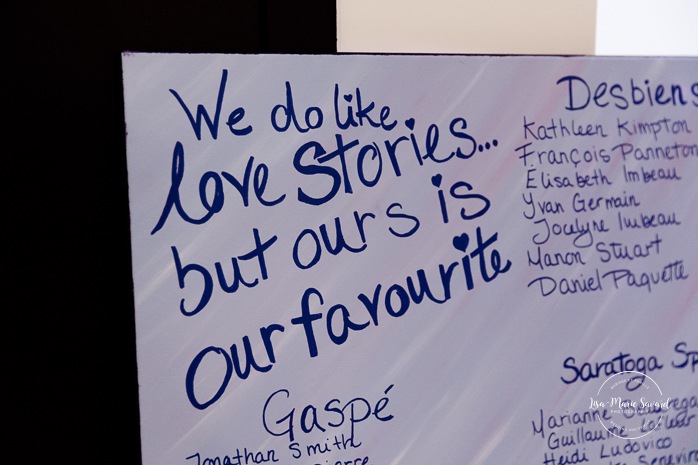 We do like
love Stories...
but ours is
our favourite
Gaspé
Jonathan Smith
Desbiens
Kathleen Kimpton
François Panneton
Élisabeth Imbeau
Yvan Germain
Jocelyne Imbeau
Manon Stuart
Daniel Paquette
Saratoga Sp
Marianne
Guillaume
Heidi Ludovico
Lisa-Marie Savard
PHOTOGRAPHY